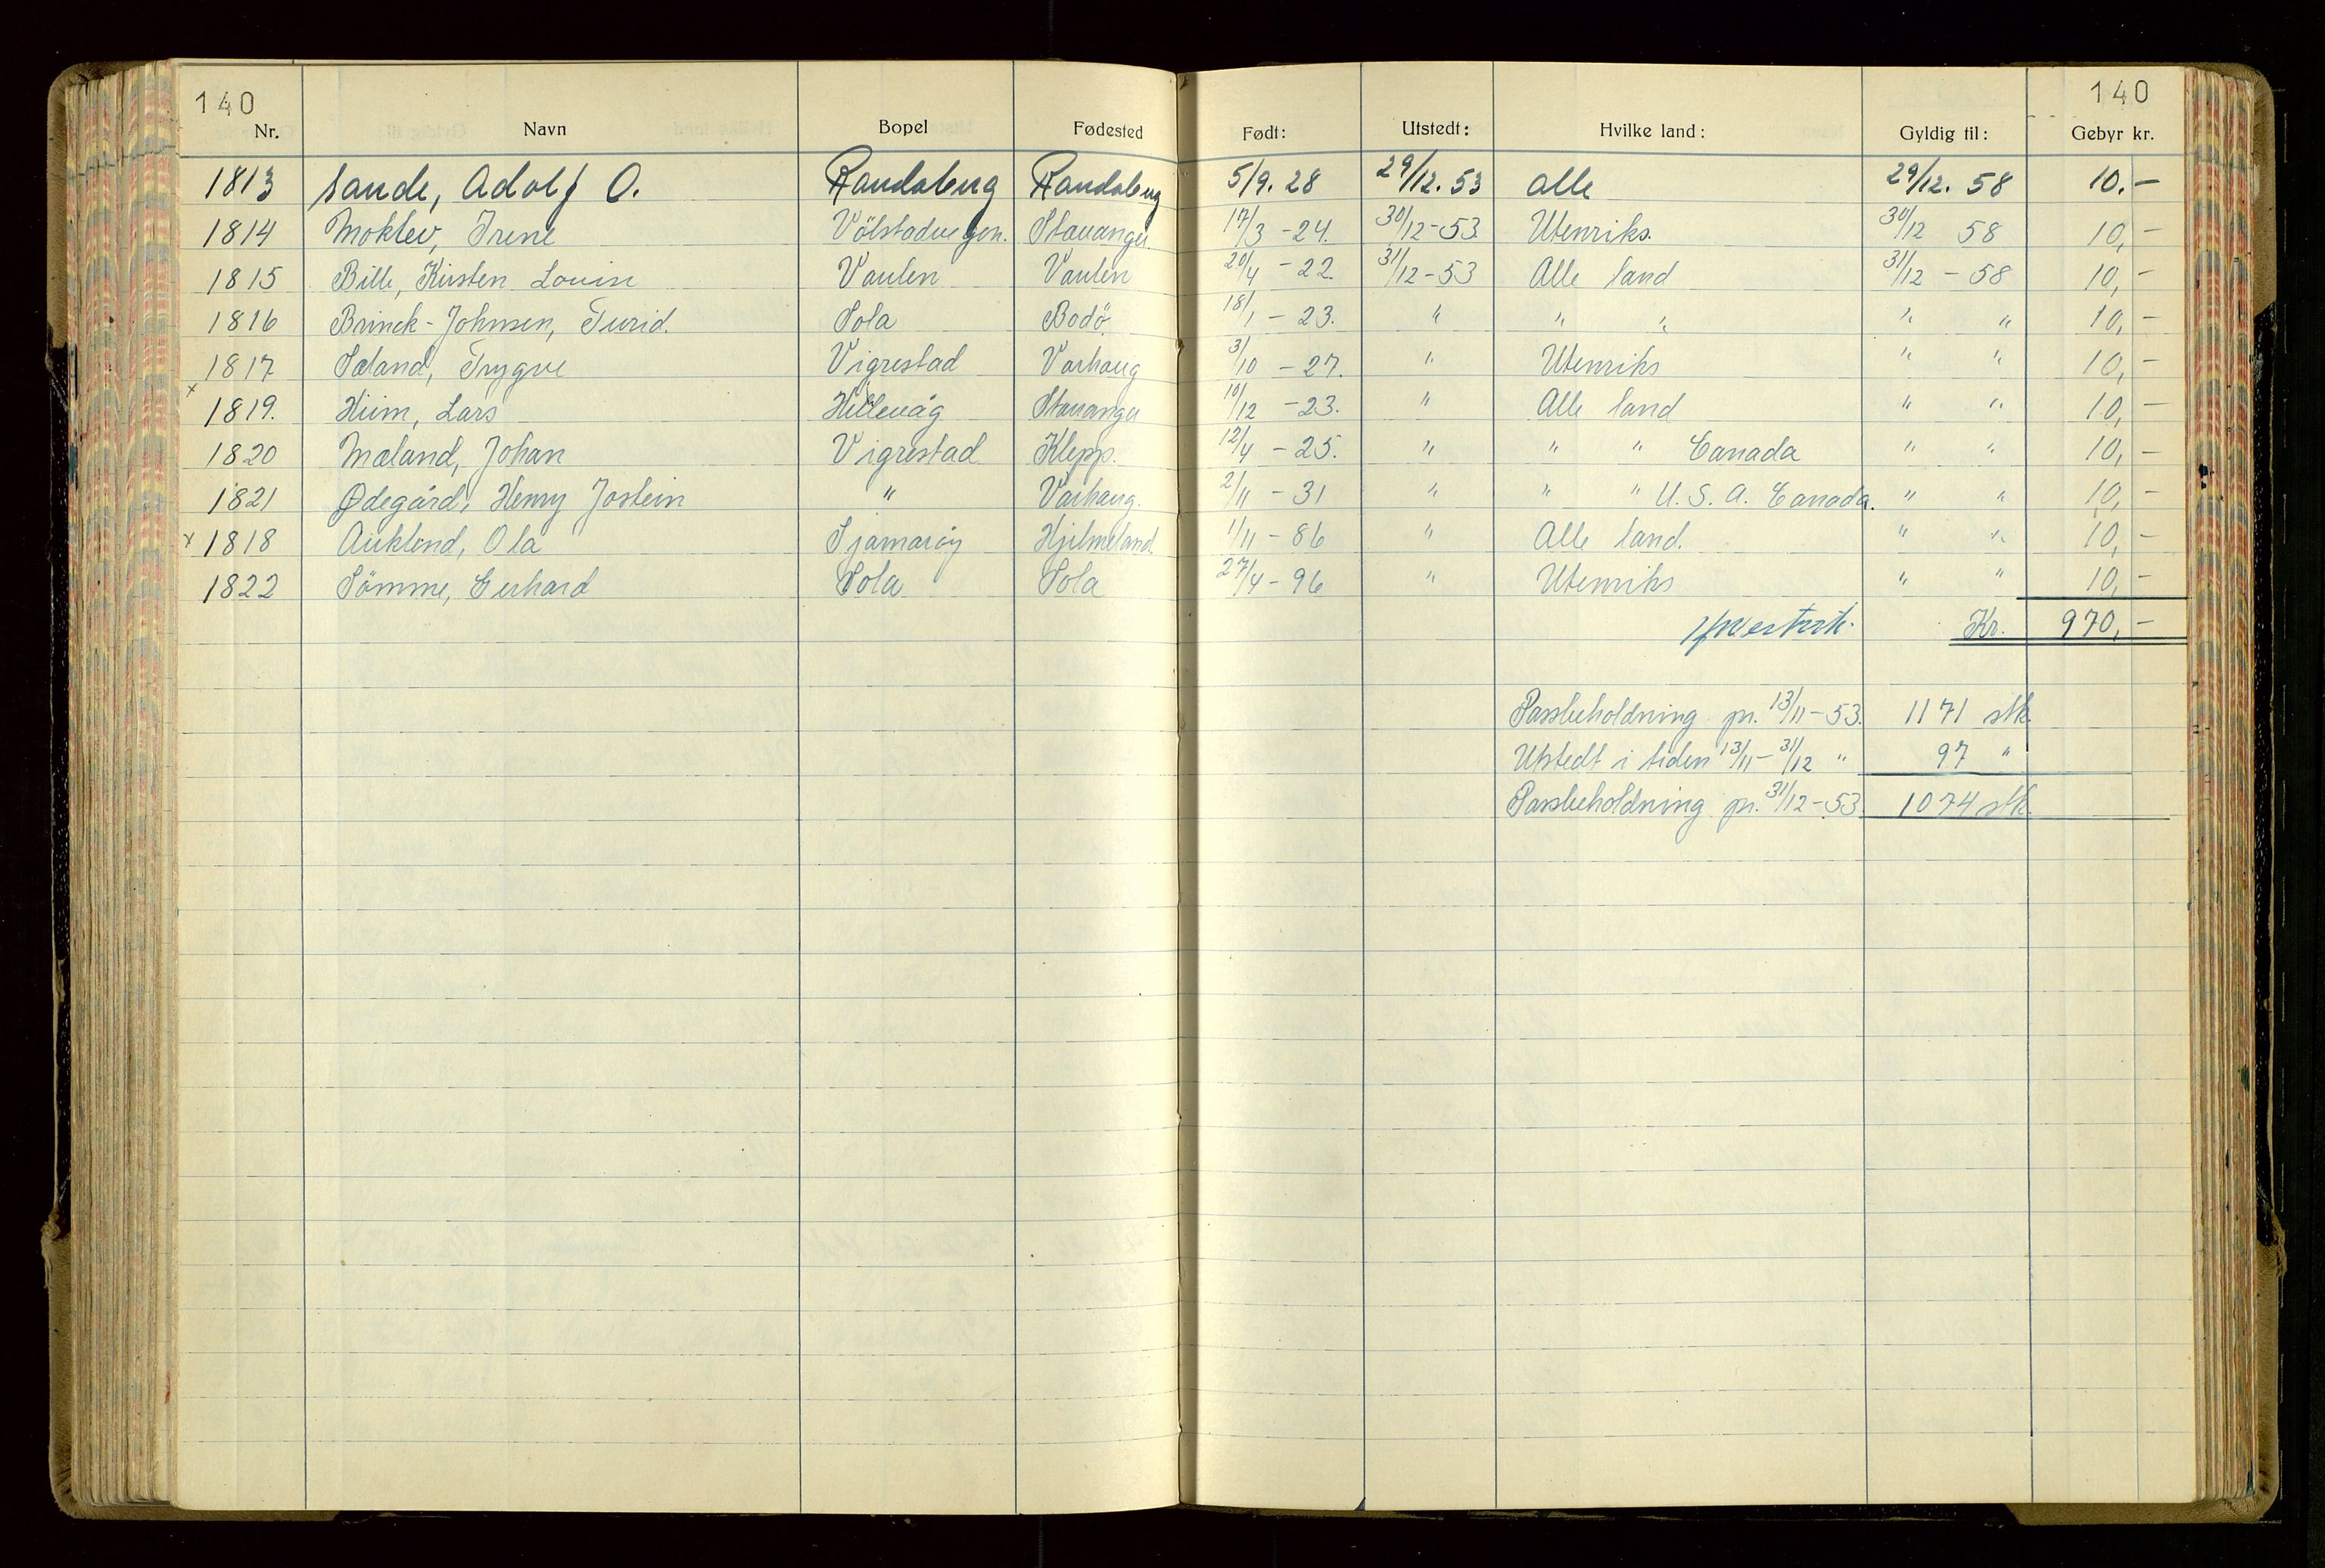 140 140
Nr. Navn Bopel Fødested Født: Utstedt: Hvilke land: Gyldig til: Gebyr kr.
1813 Sande, Adolf O. Randaberg Randaberg 5/9. 28 29/12. 53 alle 29/12. 58 10.-
1814 Moklev, Irene Vølstadveien. Stavanger. 17/3 - 24. 30/12-53. Utenriks. 30/12 58 10,-
1815 Bille, Kirsten Louise Vaulen Vaulen 20/4 - 22. 31/12-53 Alle land 31/12 - 58 10,-
1816 Brinck-Johnsen, Turid. Sola Bodö. 18/1 - 23. " " " " " 10,-
1817 Sæland, Trygve Vigrestad Varhaug 3/10 - 27. " Utenriks " " 10,-
x 1819. Hiim, Lars Hillevåg Stavanger 10/12 - 23. " Alle land " " 10,-
1820 Mæland, Johan Vigrestad Klepp. 12/4 - 25. " " " Canada " " 10,-
1821 Ødegård, Henry Jostein " Varhaug. 2/11 - 31 " " " U.S.A. Canada. " " 10,-
x 1818 Auklend, Ola Sjernarøy Hjelmeland. 1/11 - 86 " Alle land. " " 10,-
1822 Sömme, Gerhard Sola Sola 27/4 - 96 " Utenriks " " 10,-
Kr. 970,-
Passbeholdning pr. 13/11-53. 1171 stk.
Utstedt i tiden 13/11 - 31/12 " 97 "
Passbeholdning pr. 31/12-53. 1074 stk.